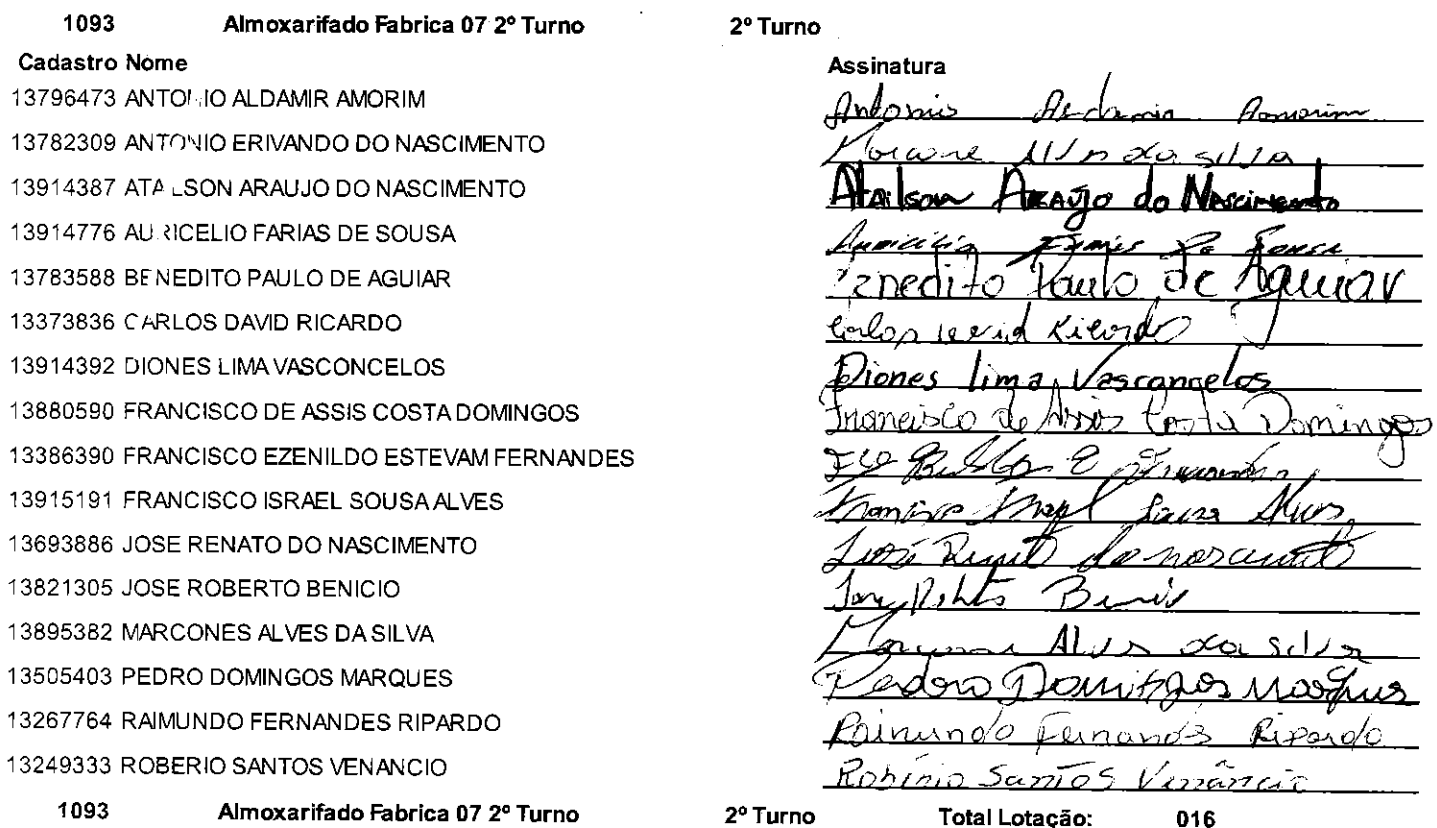 1093 Almoxarifado Fabrica 07 2º Turno 2º Turno
Cadastro Nome Assinatura
13796473 ANTONIO ALDAMIR AMORIM Antonio Aldamir Amorim
13782309 ANTONIO ERIVANDO DO NASCIMENTO Marcone Alves da silva
13914387 ATAILSON ARAUJO DO NASCIMENTO Atailson Araújo do Nascimento
13914776 AURICELIO FARIAS DE SOUSA
13783588 BENEDITO PAULO DE AGUIAR Benedito Paulo de Aguiar
13373836 CARLOS DAVID RICARDO Carlos David Ricardo
13914392 DIONES LIMA VASCONCELOS Diones lima Vascongelos
13880590 FRANCISCO DE ASSIS COSTA DOMINGOS Francisco de Assis Costa Domingos
13386390 FRANCISCO EZENILDO ESTEVAM FERNANDES
13915191 FRANCISCO ISRAEL SOUSA ALVES Francisco Israel Sousa Alves
13693886 JOSE RENATO DO NASCIMENTO José Renato do nascimento
13821305 JOSE ROBERTO BENICIO
13895382 MARCONES ALVES DA SILVA Alves da Silva
13505403 PEDRO DOMINGOS MARQUES Pedro Domingos Marques
13267764 RAIMUNDO FERNANDES RIPARDO Raimundo Fernandes Ripardo
13249333 ROBERIO SANTOS VENANCIO Robério Santos Venâncio
1093 Almoxarifado Fabrica 07 2º Turno 2º Turno Total Lotação: 016